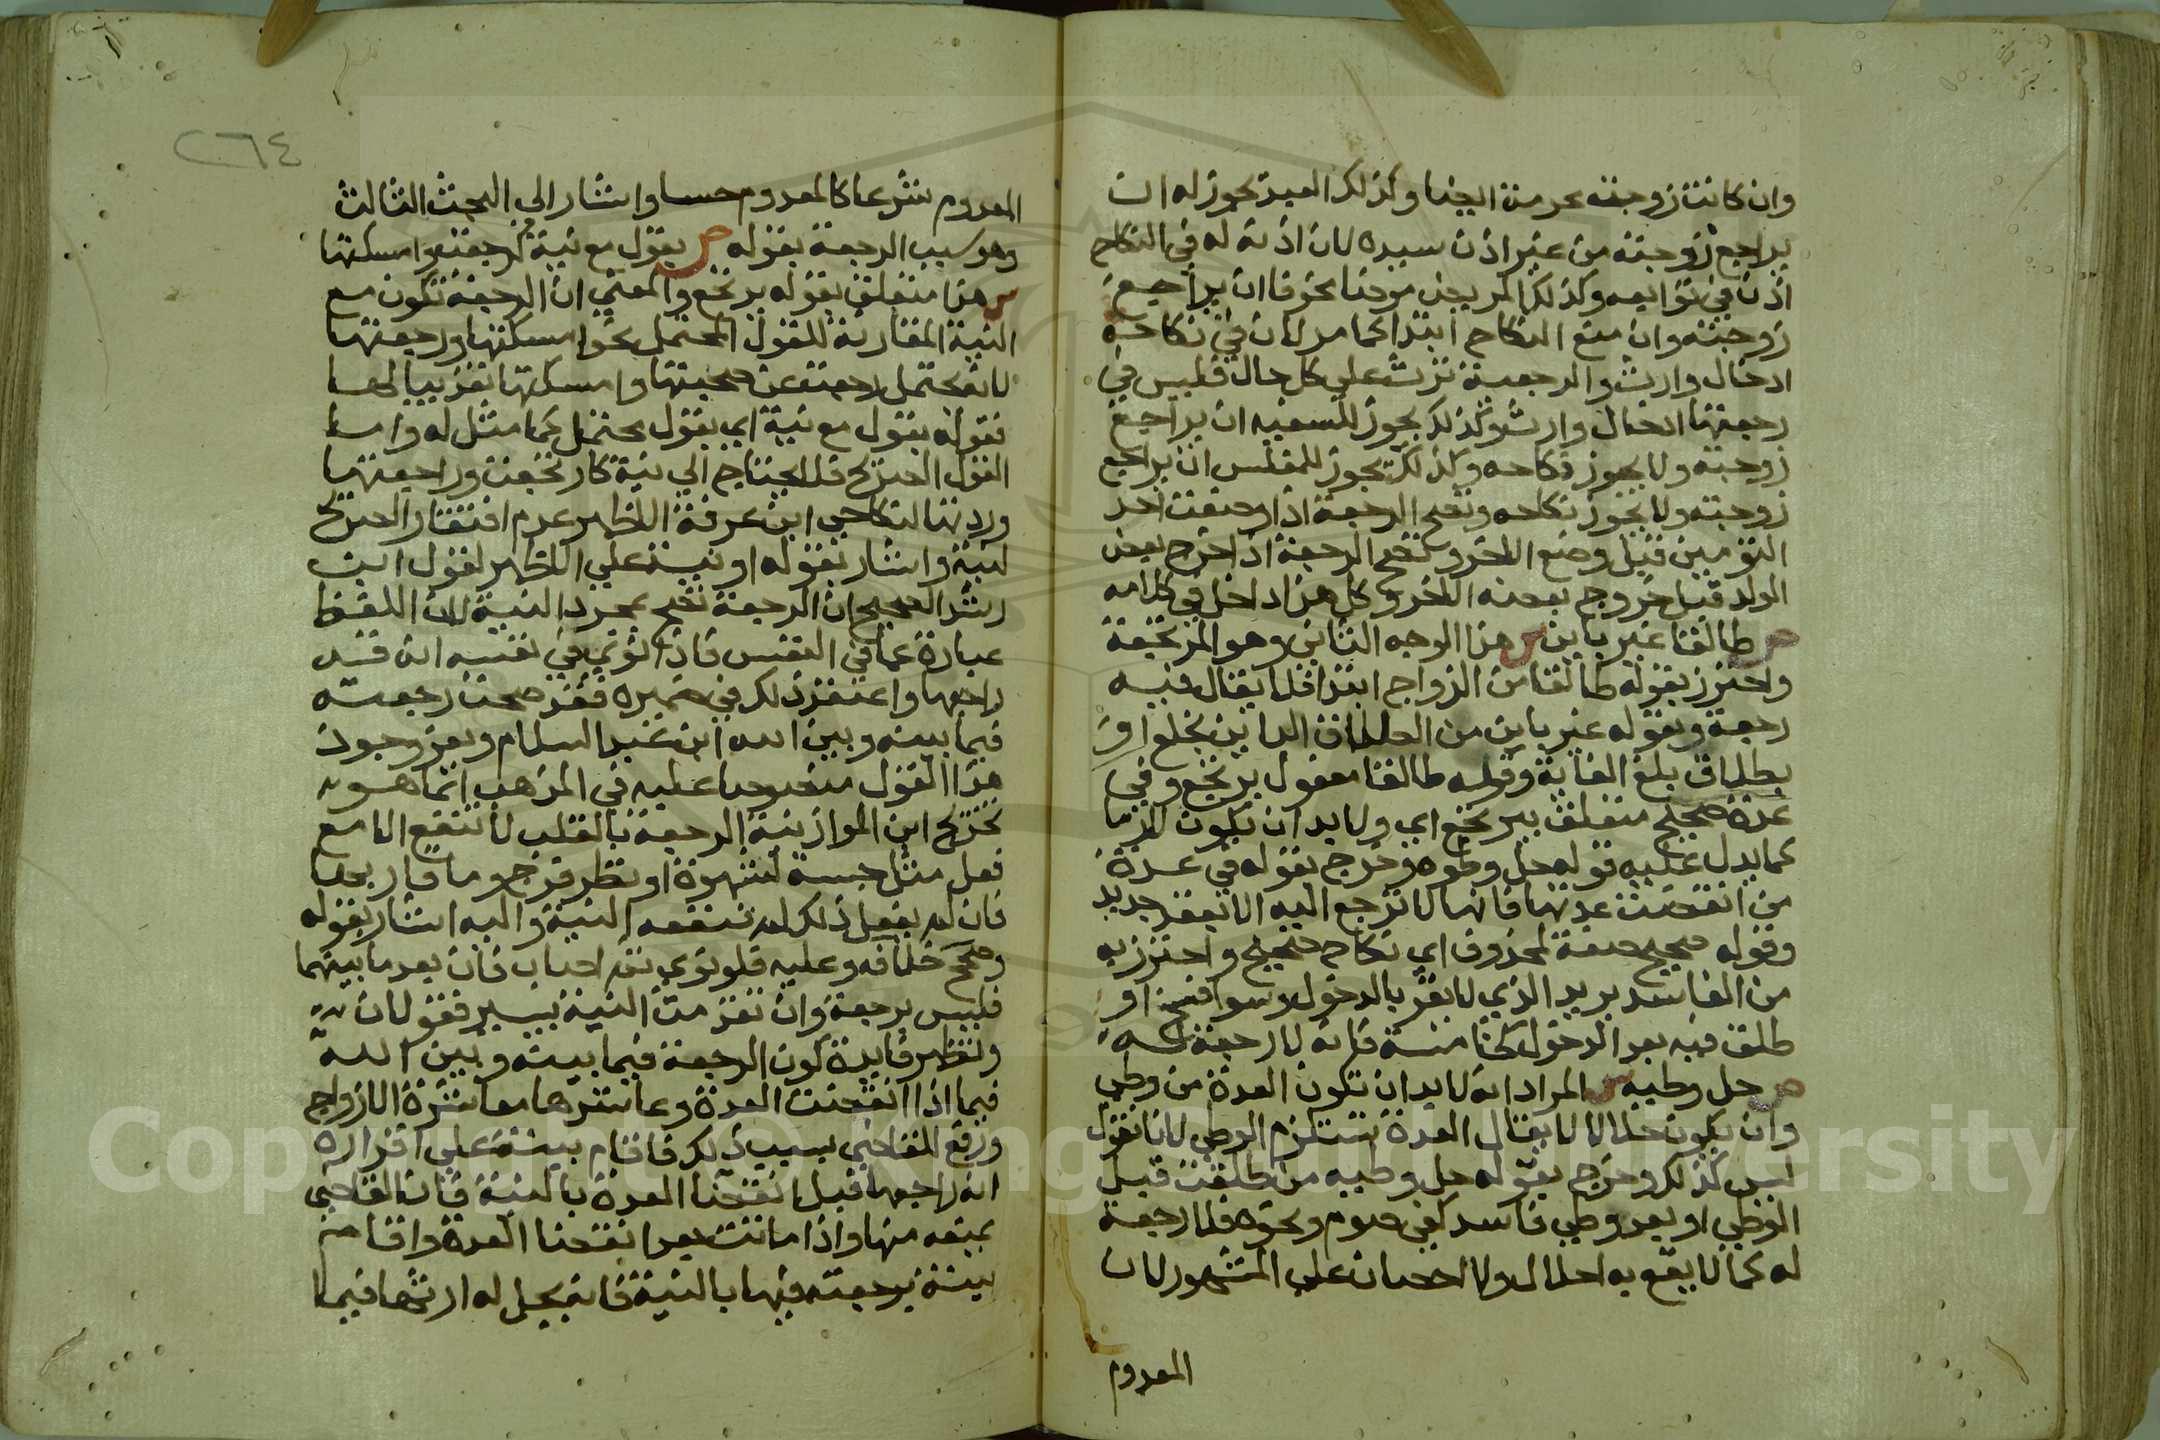 وان كانت زوجته محرمة ايضا وكذلك العبد يجوز له ان
يراجع زوجته من غير اذن سيده لان اذنه له في النكاح
اذن في توابعه وكذلك المريض مرضا مخوفا ان يراجع
زوجته وان منع النكاح ابتدا كما مر لان في نكاحه
ادخال وارث والرجعية ترث على كل حال فليس في
رجعتها ادخال وارث وكذلك يجوز للسفيه ان يراجع
زوجته ولا يجوز نكاحه وكذلك يجوز للمفلس ان يراجع
زوجته ولا يجوز نكاحه وتصح الرجعة اذا وضعت احد
التومين قبل وضع الاخر وتصح الرجعة اذا خرج بعض
الولد قبل خروج بعضه الاخر وكل هذا داخل في كلامه
ص طالقا غير باين ش هذا الوجه الثاني وهو المرتجعة
واحترز بقوله طالقا من الزواج ابتدا فلا يقال فيه
رجعة وبقوله غير باين من الطلاق الباين بخلع او
بطلاق بلغ الغاية وقوله طالقا معمول يرتجع وفي
عدة صحيح متعلق بيرتجع اي ولا بد ان يكون لازما
كما يدل عليه قوله حل وطوه وخرج بقوله في عدة
من انقضت عدتها فانها لا ترجع اليه الا بعقد جديد
وقوله صحيح صفة لمحذوف اي نكاح صحيح واحترز به
من الفاسد يريد الذي لا يقر بالدخول وسوا فسخ او
طلق فيه بعد الدخول كخامسة فانه لا رجعة له
ص حل وطيه ش المراد انه لا بد ان تكون العدة من وطي
وان يكون حلالا لا يقال العدة تستلزم الوطي لانا نقول
ليس كذلك وخرج بقوله حل وطيه من طلقت قبل
الوطي او بعد وطي فاسد كفي صوم ونحوه فلا رجعة
له كما لا يقع به احلال ولا احصان على المشهور لان
المعدوم
٢٦٤
المعدوم شرعا كالمعدوم حسا واشار الى البحث الثالث
وهو سبب الرجعة بقوله ص بقول مع نية كرجعت وامسكتها
ش هذا متعلق بقوله يرتجع والمعني ان الرجعة تكون مع
النية المقارنة للقول المحتمل نحو امسكتها ورجعتها
لانه يحتمل رجعت عن محبتها وامسكتها تعذيبا لها
فقوله بقول مع نية اي بقول محتمل كما مثل له واما
القول الصريح فلا يحتاج الي نية كارتجعت وراجعتها
ورددتها لنكاحي ابن عرفة الاظهر عدم افتقار الصريح
لنية واشار بقوله او نية علي الاظهر لقول ابن
رشد الصحيح ان الرجعة تصح بمجرد النية لان اللفظ
عبارة عما في النفس فاذا نوي في نفسه انه قد
راجعها واعتقد ذلك في ضميره فقد صحت رجعته
فيما بينه وبين الله ابن عبد السلام وبعد وجود
هذا القول منصوصا عليه في المذهب انما هو
تخريج ابن المواز نية الرجعة بالقلب لا تنفع الا مع
فعل مثل جسة لشهوة او نظر فرج وما قاربها
فان لم يفعل ذلك لم تنفعه النية واليه اشار بقوله
وصحح خلافه وعليه فلو نوي ثم اصاب فان بعد ما بينهما
فليس برجعة وان تقدمت النية بيسير فقولان
وتظهر فايدة كون الرجعة فيما بينه وبين الله
فيما اذا انقضت العدة وعاشرها معاشرة الازواج
ورفع للقاضي بسبب ذلك فاقام بينة علي اقراره
انه راجعها قبل انقضا العدة بالنية فان القاضي
يمنعه منها واذا ماتت بعد انقضا العدة واقام
بينة برجعته فيها بالنية فانه يحل له ارثها فيما